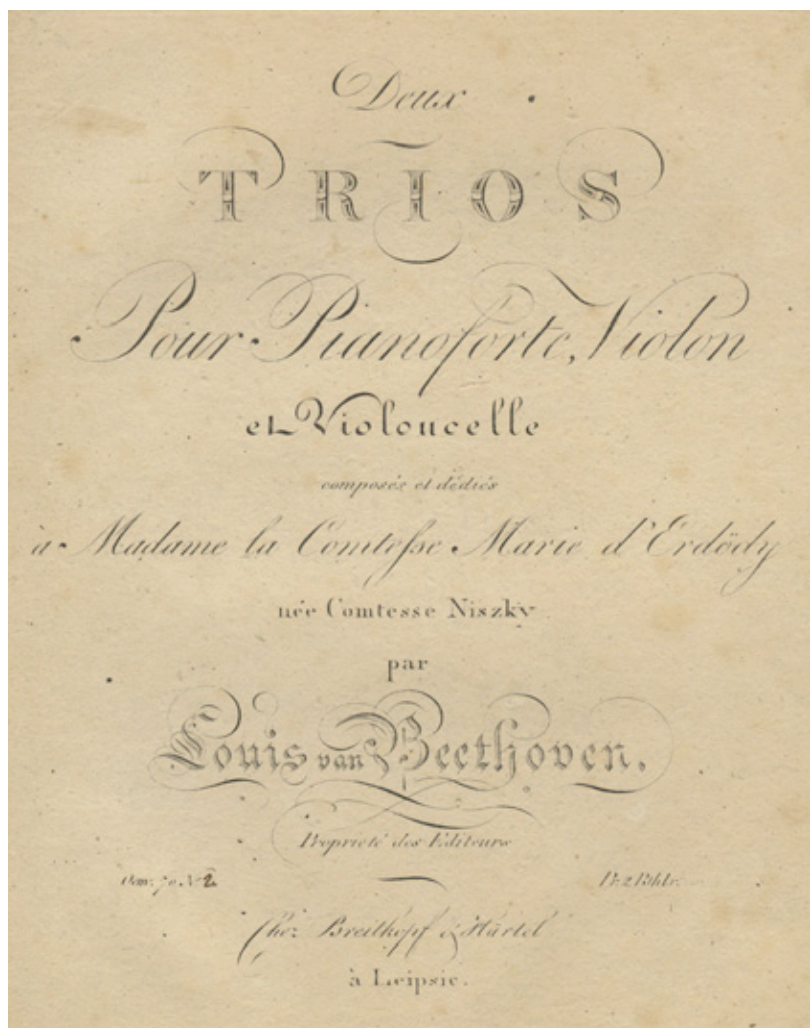 Deux
TRIOS
Pour Pianoforte, Violon
et Violoncelle
composés et dédiés
à Madame la Comtesse Marie d'Erdödy
née Comtesse Niszky
par
Louis van Beethoven.
Propriété des Editeurs
Oeuv: 70. № 2. Pr. 2 Rthlr.
Chez Breitkopf & Härtel
à Leipsic.